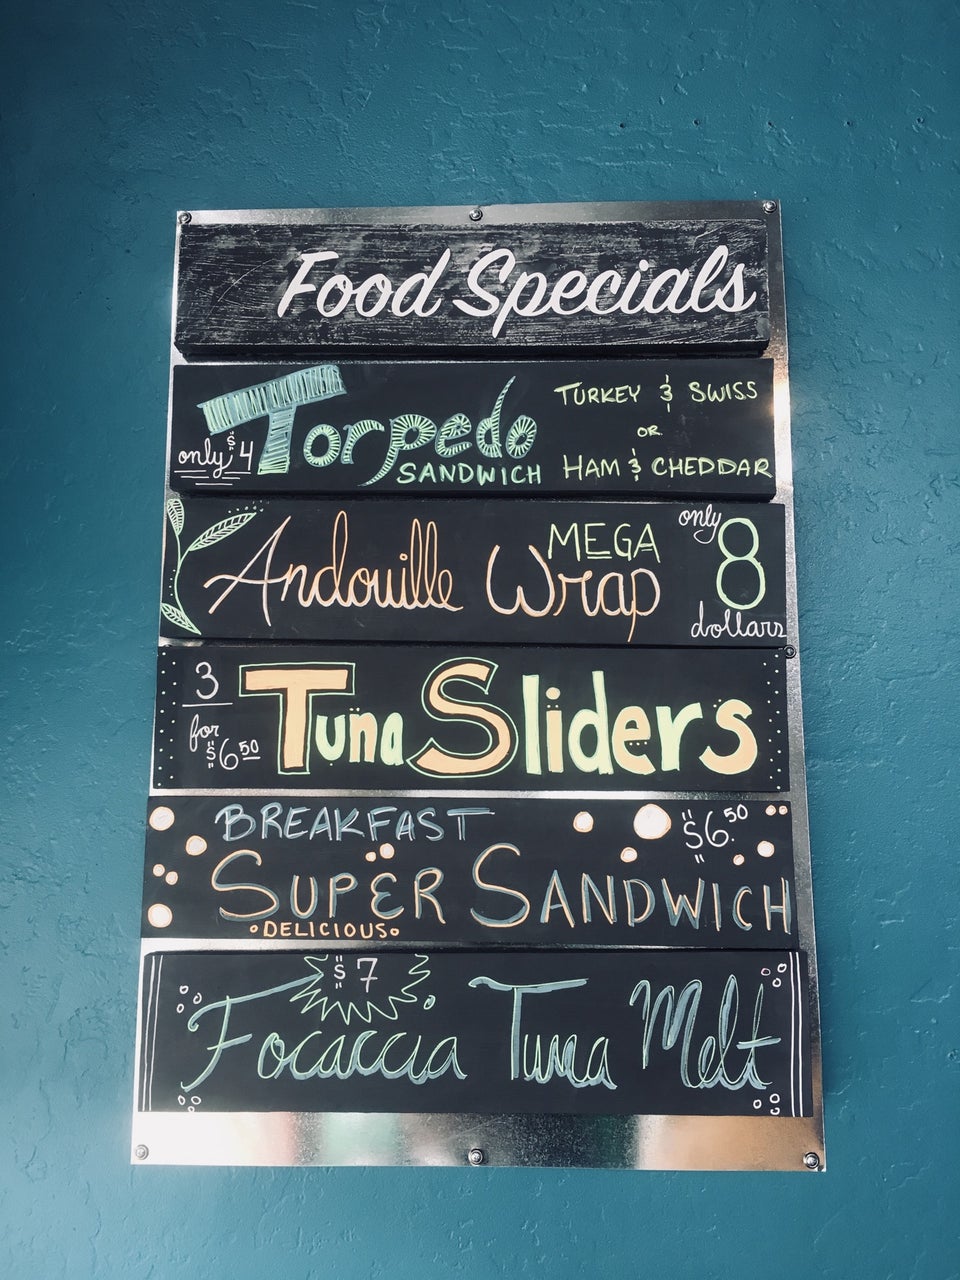 Food Specials
Torpedo
SANDWICH
only $4
TURKEY & SWISS
OR
HAM & CHEDDAR
Andouille MEGA Wrap
only 8 dollars
3 for $6.50
Tuna Sliders
BREAKFAST
$6.50
SUPER SANDWICH
DELICIOUS
$7
Focaccia Tuna Melt